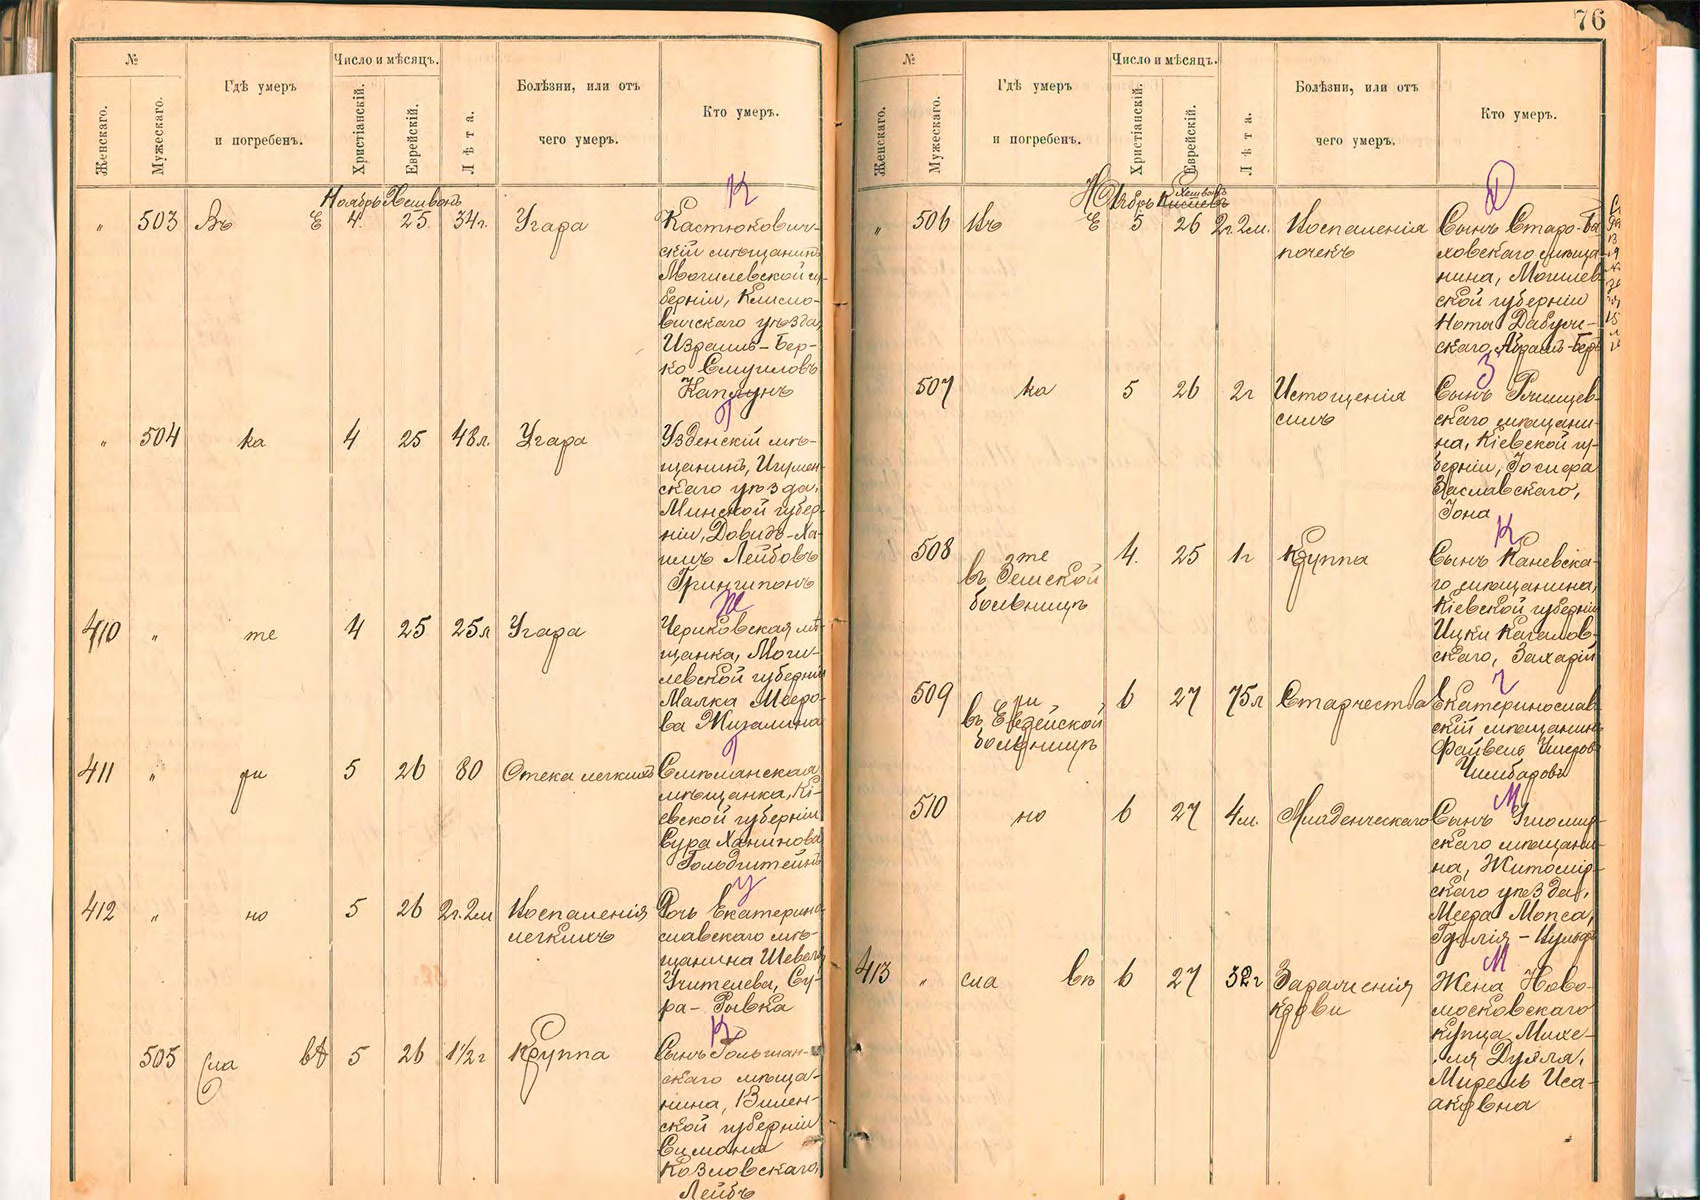 №
Женскаго.
Мужескаго.
Гдѣ умеръ
и погребенъ.
Число и мѣсяцъ.
Христіанскій.
Еврейскій.
Лѣта.
Болѣзни, или отъ
чего умеръ.
Кто умеръ.
К
Ноябрь Хешвонъ
" 503 Въ Е 4. 25 34г. Угара Кастюкович-
скій мѣщанинъ
Могилевской гу-
берніи, Климо-
вичскаго уѣзда,
Израиль-Бер-
ко Смуиловъ
Каплунъ
Г
" 504 ка 4 25 48л. Угара Узденскій мѣ-
щанинъ, Игумен-
скаго уѣзда,
Минской губер-
ніи, Довидъ-Ха-
имъ Лейбовъ
Ж
410 " те 4 25 25л Угара Чериковская мѣ-
щанка, Моги-
левской губерніи
Малка Мееро-
ва Жигалина
Г
411 " ри 5 26 80 Отека легкихъ Смѣлянская
мѣщанка, Кі-
евской губерніи
Сура Ханинова
Гольдштейнъ
У
412 " но 5 26 2г.2м Воспаленія легкихъ Дочь Екатерино-
славскаго мѣ-
щанина Шевеля
Учителева, Су-
ра-Рывка
К
505 сла вѣ 5 26 1½г Круппа Сынъ Гольшан-
скаго мѣща-
нина, Вилен-
ской губерніи
Симона
Козловскаго,
Лейбъ
76
№
Женскаго.
Мужескаго.
Гдѣ умеръ
и погребенъ.
Число и мѣсяцъ.
Христіанскій.
Еврейскій.
Лѣта.
Болѣзни, или отъ
чего умеръ.
Кто умеръ.
Хешвонъ
Ноябрь Кислевъ
Д
" 506 Въ Е 5 26 2г.2м. Воспаленія почекъ Сынъ Старо-Бы-
ховскаго мѣща-
нина, Могилев-
ской губерніи
Нота
скаго, Абрамъ-Беръ
З
507 ка 5 26 2г Истощенія силъ Сынъ Ржищев-
скаго мѣщани-
на, Кіевской гу-
берніи, Іосифа
Заславскаго,
Іона
К
508 те въ Земской больницѣ 4. 25 1г Круппа Сынъ Каневска-
го мѣщанина,
Кіевской губерніи
Ицки Кагалов-
скаго, Захарій
Ч
509 ри въ Еврейской больницѣ 6 27 75л Старчества Екатеринослав-
скій мѣщанинъ
Файвель
М
510 но 6 27 4м. Младенческаго Сынъ Житомир-
скаго мѣщани-
на, Житомир-
скаго уѣзда,
Меера Мопса,
М
413 " сла вѣ 6 27 32г Зараженія крови Жена Ново-
московскаго
купца Михе-
ля Дуяля,
Мирель Иса-
аковна